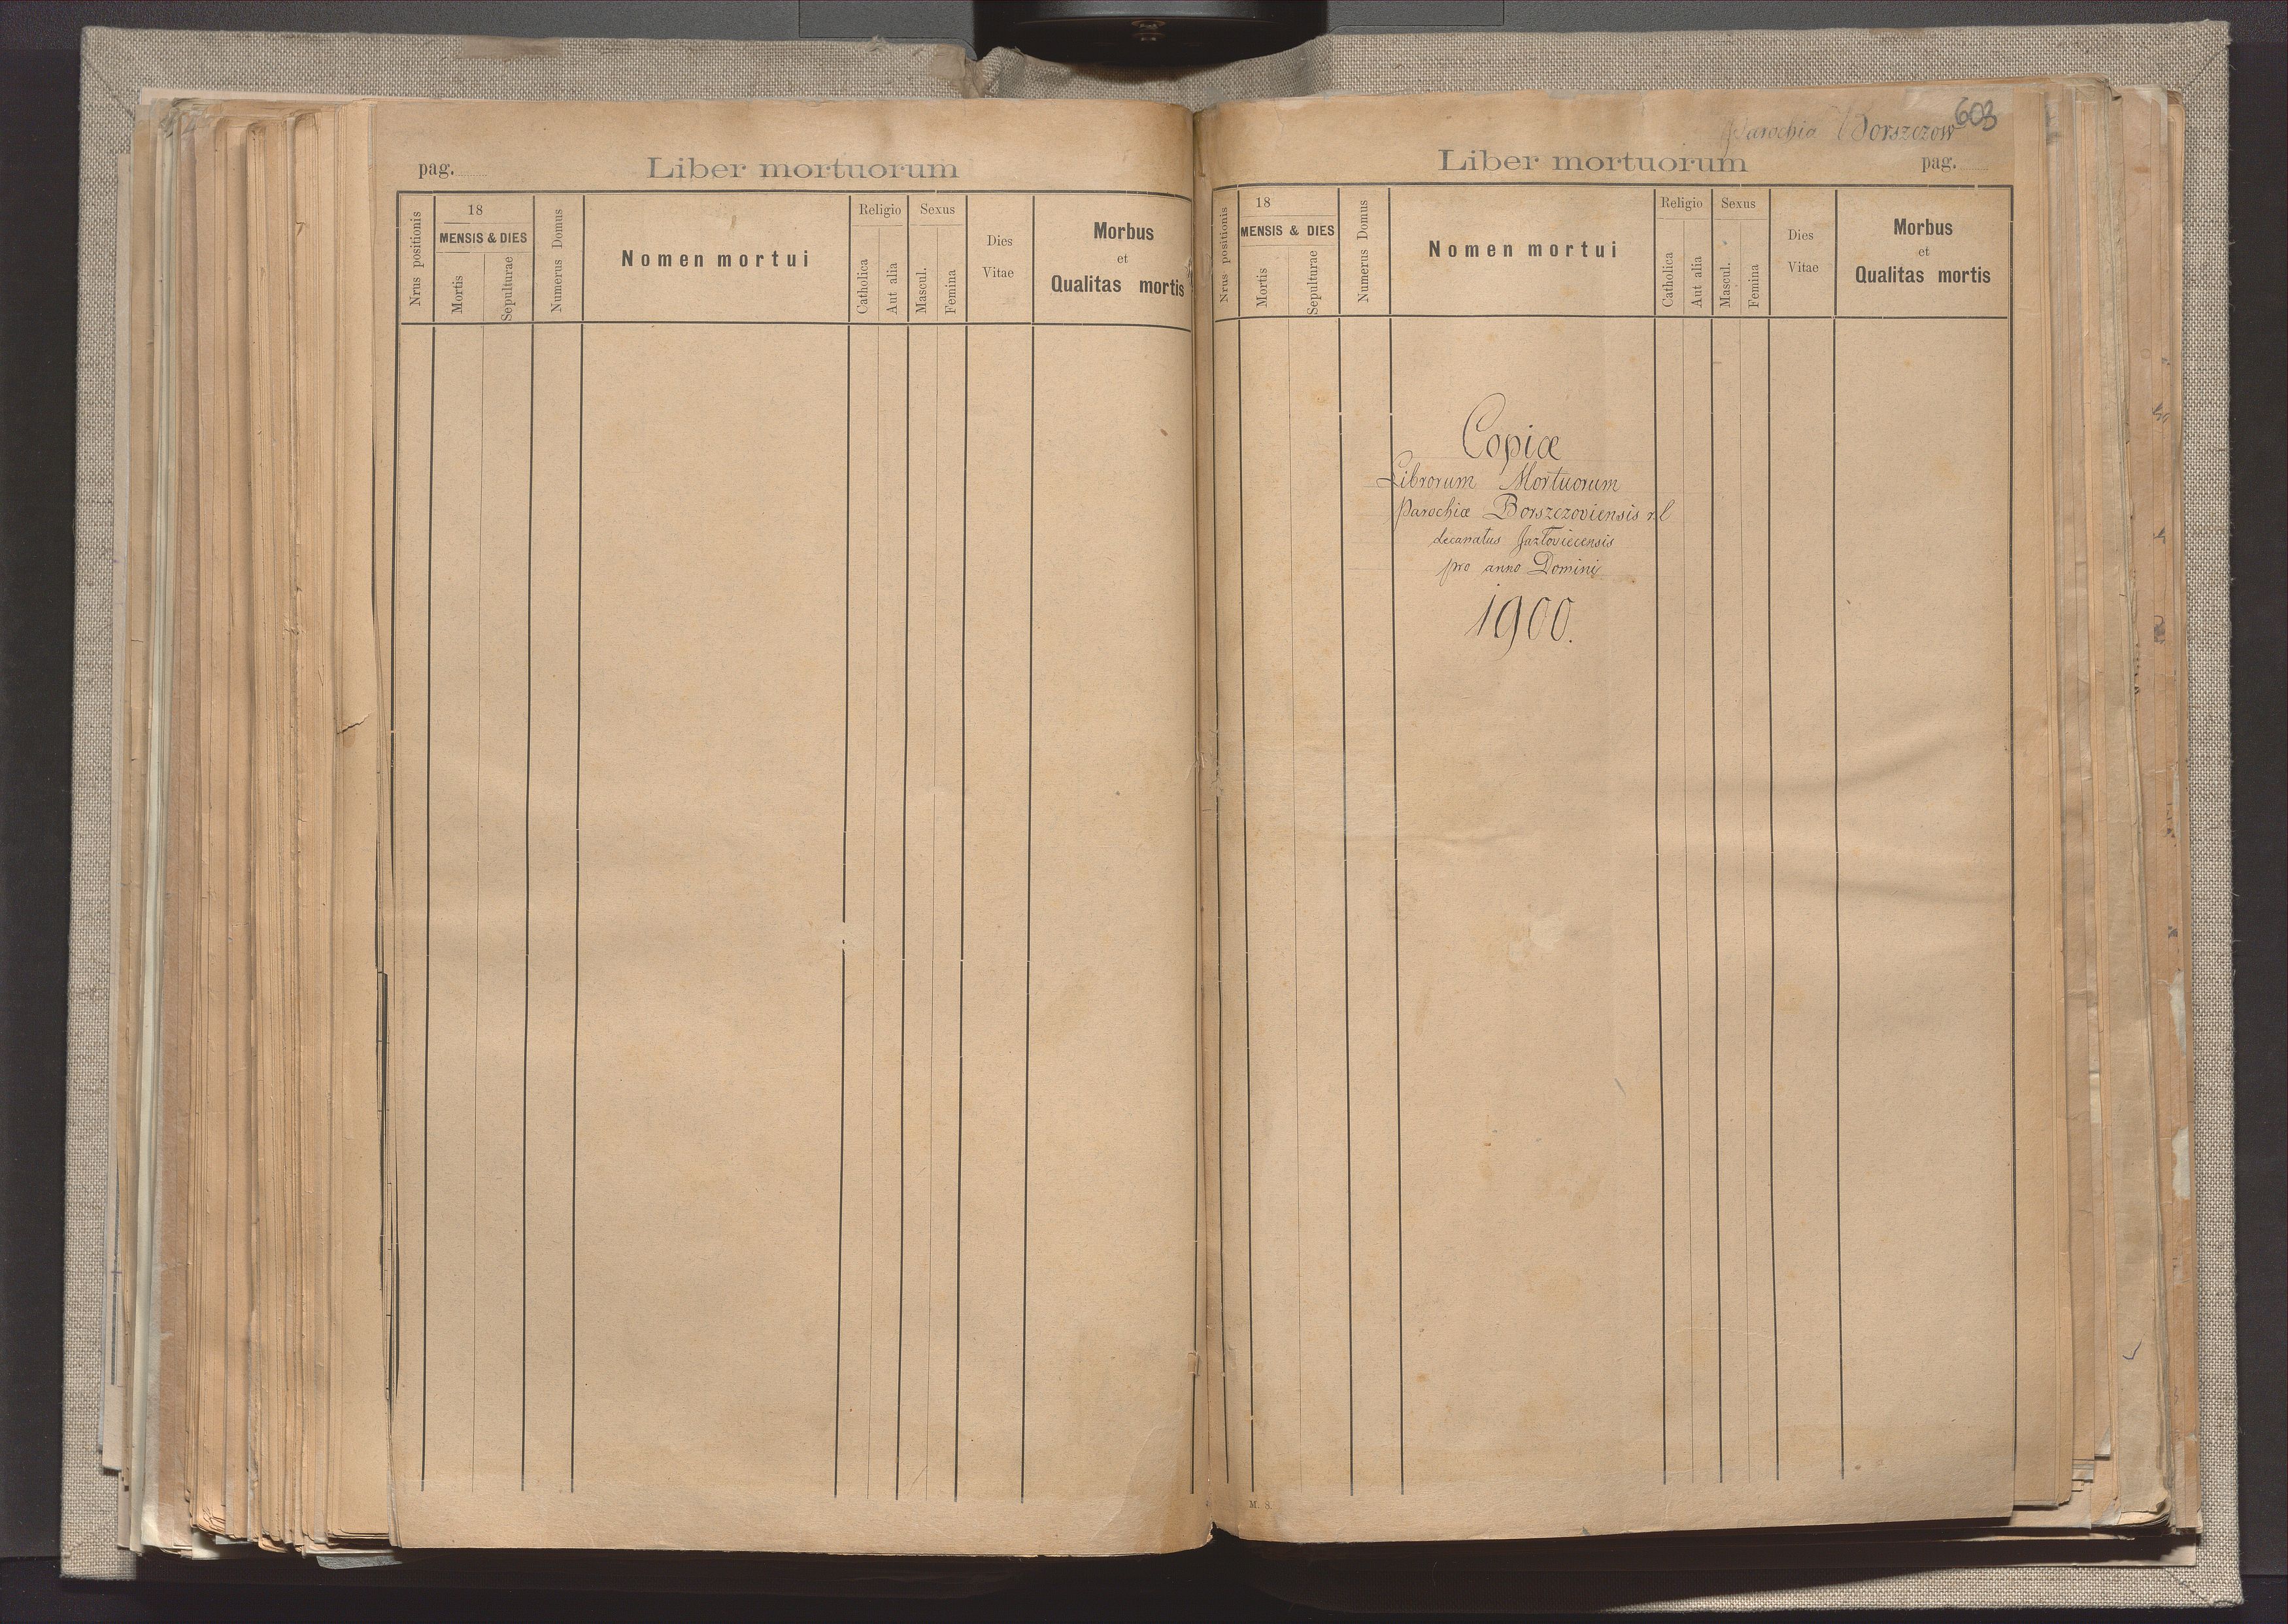 pag.
Liber mortuorum
Nrus positionis
18
MENSIS & DIES
Mortis
Sepulturae
Numerus Domus
Nomen mortui
Religio
Catholica
Aut alia
Sexus
Mascul.
Femina
Dies
Vitae
Morbus
et
Qualitas mortis
Parochia Borszczow
603
Liber mortuorum
pag.
Nrus positionis
18
MENSIS & DIES
Mortis
Sepulturae
Numerus Domus
Nomen mortui
Religio
Catholica
Aut alia
Sexus
Mascul.
Femina
Dies
Vitae
Morbus
et
Qualitas mortis
Copiæ
Librorum Mortuorum
Parochiæ Borszczoviensis r. l
decanatus Jazłoviecensis
pro anno Domini
1900.
M. 8.